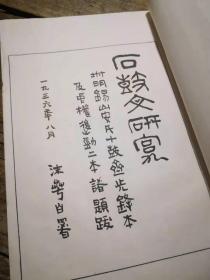 石鼓文研究
坿明錫山安氏十鼓齋先鋒本
及中權後勁二本諸題跋
一九三六年八月
沫若自署